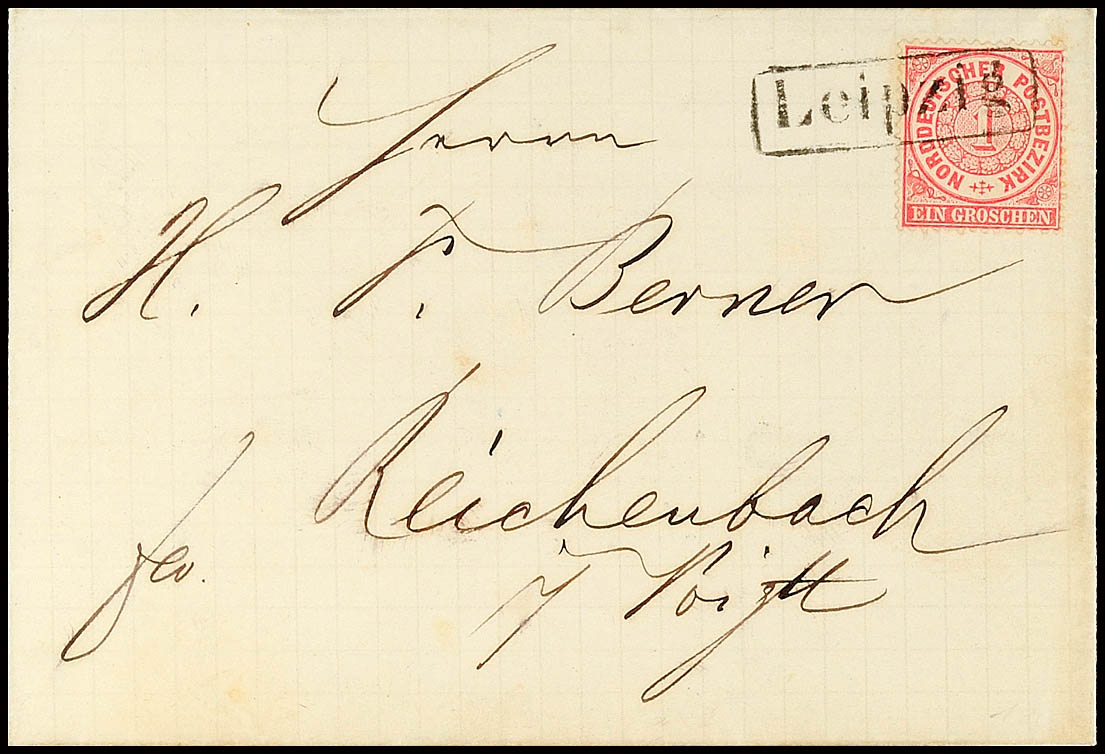 Leipzig
NORDDEUTSCHER POSTBEZIRK
1
EIN GROSCHEN
Herrn
H. F. Berner
Reichenbach
i/ Voigtl
fco.